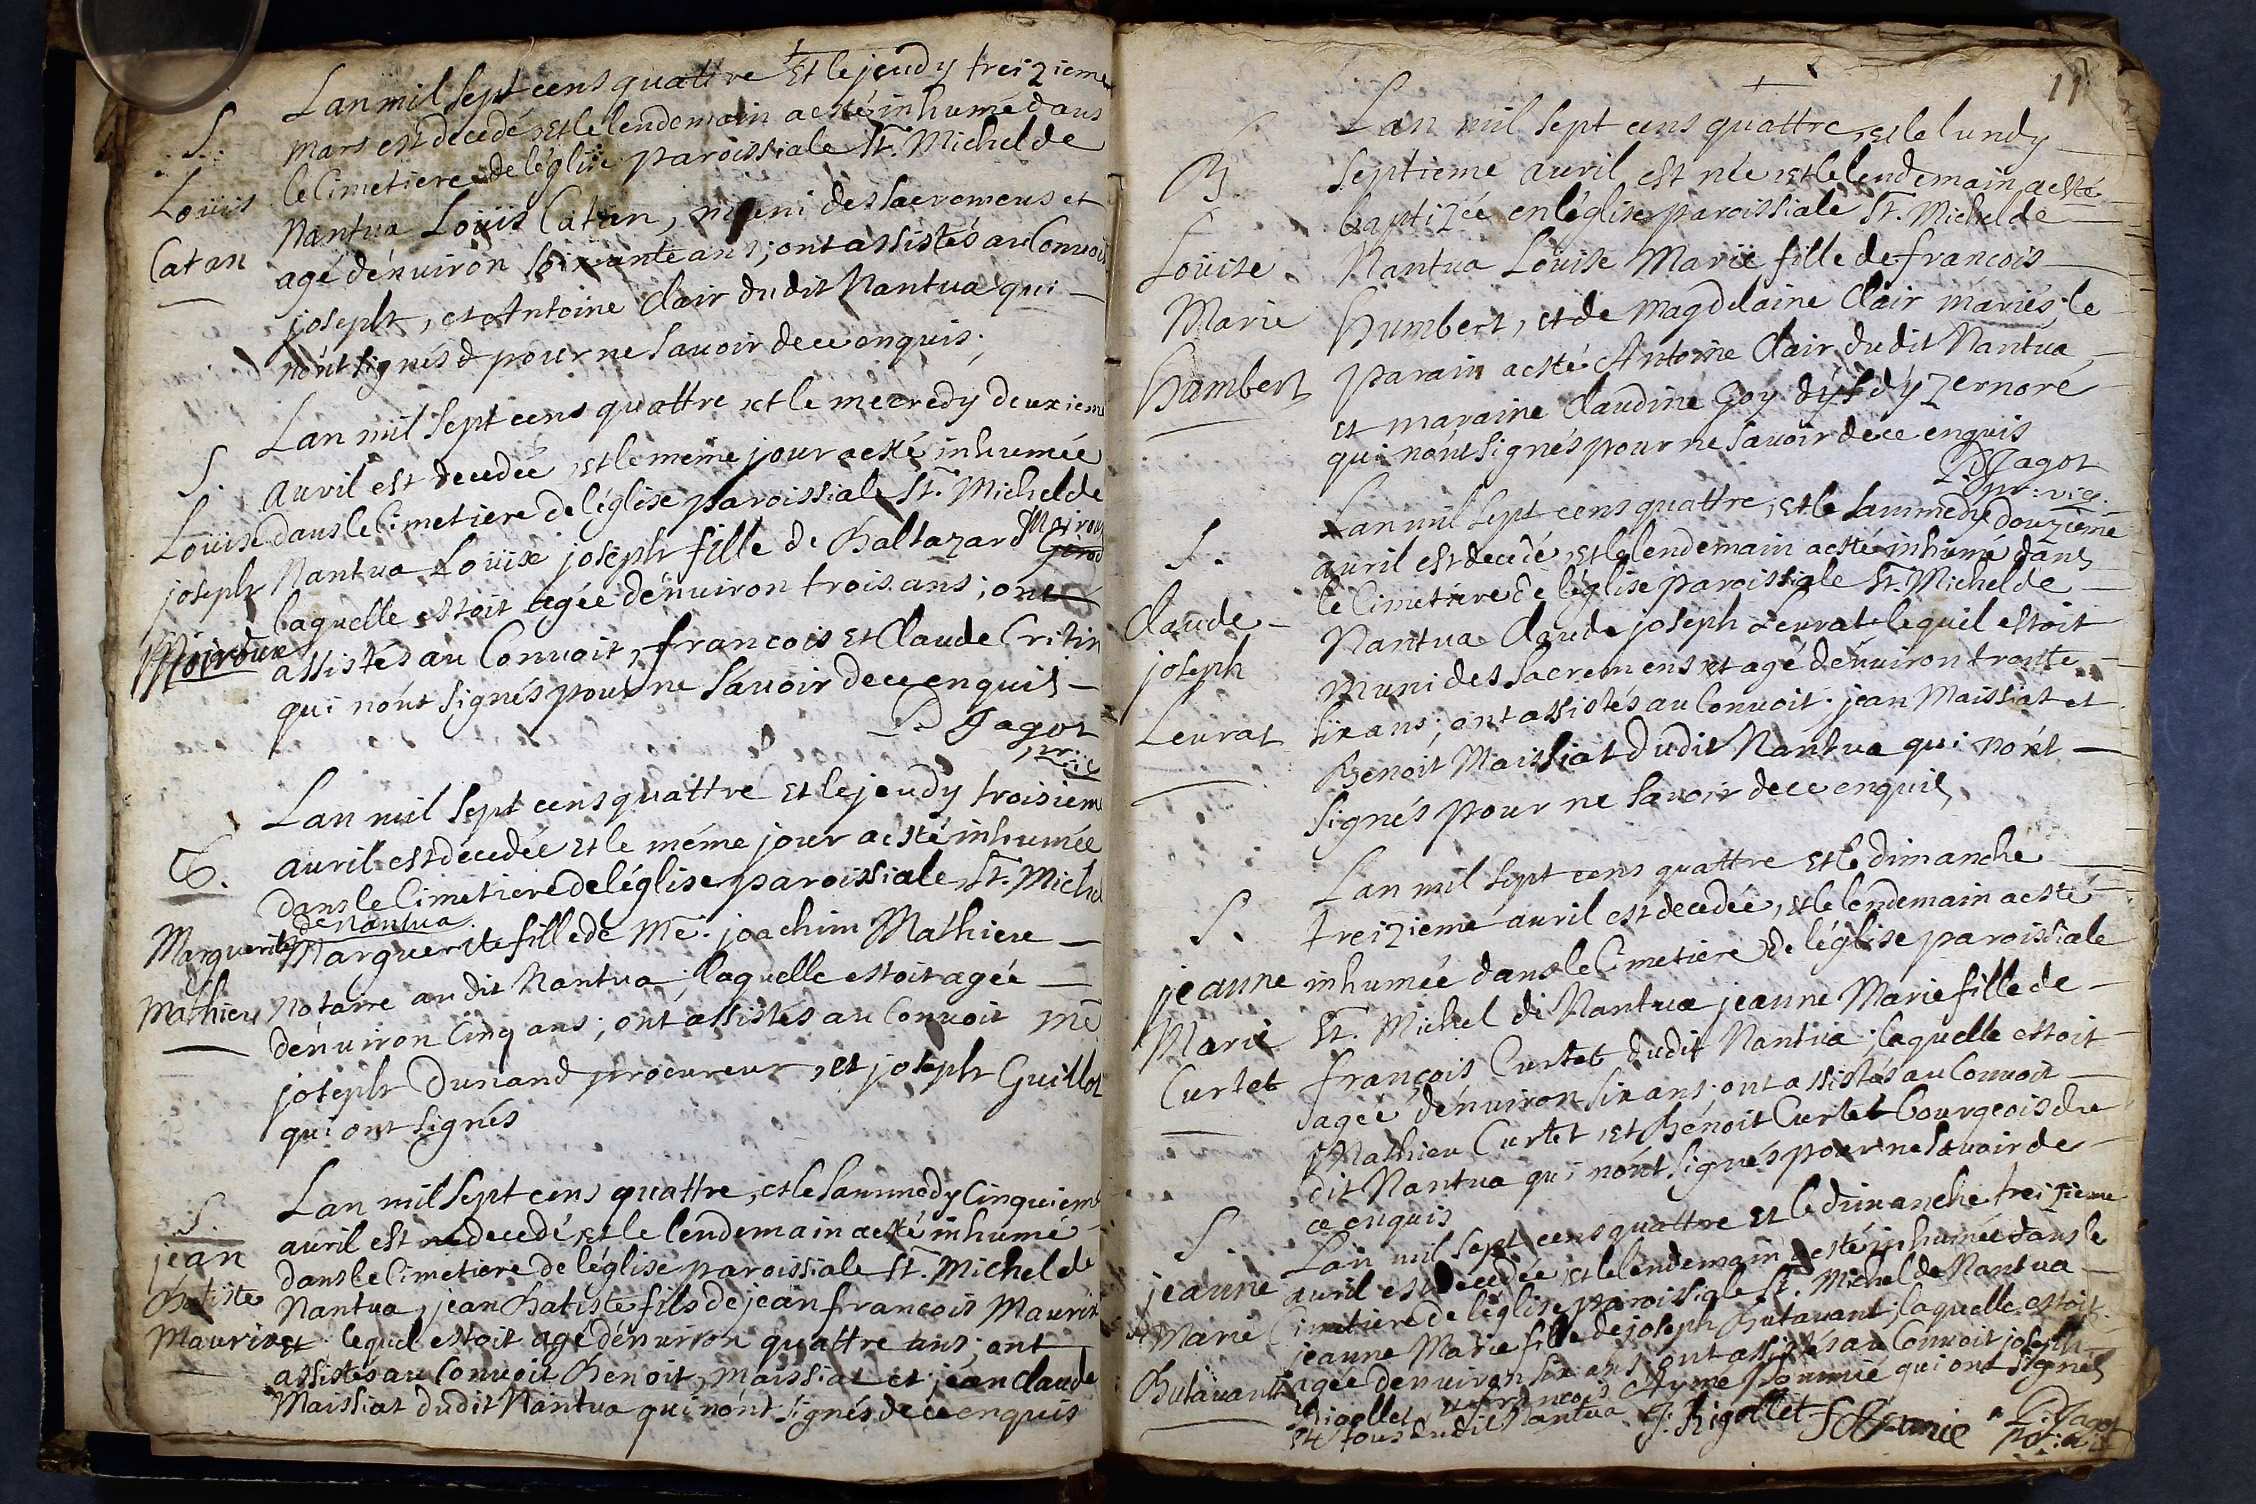 Lan mil sept cens quattre Et le jeudy treizieme
mars est decedé et le lendemain a esté inhumé dans
S.
le Cimetiere de léglise paroissiale St. Michel de
Loüis
Nantua Loüis Catan, muni des sacremens et
Catan
agé dénuiron soixante ans; ont assistés au Conuoit
joseph, et Antoine Clair dudit Nantua qui
nónt signés pour ne sauoir de ce enquis;
Lan mil sept cens quattre et le mecredy deuxieme
S.
auril est decedée et le méme jour a esté inhumée
Loüise dans le Cimetiere de léglise paroissiale St. Michel de
joseph Nantua Loüise joseph fille de Baltazard Moiroux
laquelle estoit agée dénuiron trois ans; ont
Moiroux
assistés au Conuoit, francois et Claude Critin
qui nónt signés pour ne sauoir de ce enquis
D Jagot
pr. vic
Lan mil sept cens quattre Et le jeudy troisieme
S.
auril est décedée et le méme jour a esté inhumée
dans le Cimetiere de léglise paroissiale St. Michel
de Nantua
Marguerite Marguerite fille de Me. joachim Mathieu
Mathieu Notaire au dit Nantua, laquelle estoit agée
dénuiron Cinq ans; ont assistés au Conuoit Me
joseph Dunand procureur, et joseph Guillot
qui ont signés
Lan mil sept cens quattre, et le sammedy Cinquieme
S.
auril est ne decedé et le lendemain a esté inhumé
jean
dans le Cimetiere de léglise paroissiale St. Michel de
Batiste
Nantua, jean Batiste fils de jean francois Maurin
Maurin et lequel estoit agé dénuiron quattre ans; ont
assistés au Conuoit Benoit Maissiat et jean Claude
Maissiat dudit Nantua qui nónt signés de ce enquis
11
Lan mil sept cens quattre, et le lundy
B
septieme auril est née et le lendemain a esté
baptizée en léglise paroissiale St. Michel de
Loüise
Nantua Loüise Marie fille de francois
Marie
Humbert, et de Magdelaine Clair mariés; le
Humbert
parain a esté Antoine Clair dudit Nantua
et maraine Claudine Goy dýzernoré
qui nónt signés pour ne sauoir de ce enquis
D Jagot
pr. vic.
Lan mil sept cens quattre, et le sammedy douzieme
S.
auril est decedé et le lendemain a esté inhumé dans
le Cimetiere de léglise paroissiale St. Michel de
Claude
Nantua Claude joseph Leurat lequel estoit
joseph
muni des sacremens et agé dénuiron trante
Leurat
six ans; ont assistés au Conuoit jean Maissiat et
Benoit Maissiat dudit Nantua qui nónt
signés pour ne sauoir de ce enquis
Lan mil sept cens quattre et le dimanche
S.
treizieme auril est decedée, et le lendemain a esté
jeanne inhumée dans le Cimetiere de léglise paroissiale
Marie
St. Michel de Nantua jeanne Marie fille de
Curtet
francois Curtet dudit Nantua; laquelle estoit
agée dénuiron six ans; ont assistés au Conuoit
Mathieu Curtet, et Bénoit Curtet bourgeois du
dit Nantua qui nónt signés pour ne sauoir de
ce enquis
S.
Lan mil sept cens quattre et le dimanche treizieme
jeanne
auril est decedée, et le lendemain a esté inhumée dans le
Marie
Cimetiere de léglise paroissiale St. Michel de Nantua
Butauant
jeanne Marie fille de joseph Butauant; laquelle estoit
agée denuiron six ans; ont assistés au Conuoit joseph
Rigollet, et francois Aymé Pommié qui ont signés
Et tous dudit Nantua J. Rigollet
D. Jagot